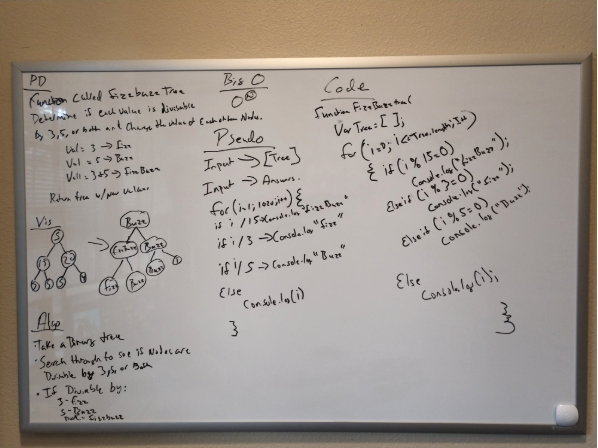 PD
Function Called FizzbuzzTree
Determine if each value is divisable
by 3, 5, or both and Change the value of Each of them Nodes.
Val = 3 → Fizz
Val = 5 → Buzz
Val = 3+5 → FizzBuzz
Return tree w/ new values
Vis
5
15
20
Buzz
FizzBuzz
Buzz
Fizz
Buzz
Buzz
Algo
· Take a Binary tree
· Search through to see is Nodes are
Divisable by 3, 5, or Both
· If Divisable by:
3 - Fizz
5 - Buzz
Both - Fizzbuzz
Big O
O
Pseudo
Input → [Tree]
Input → Answers.
for(i=1; i
if i / 15 → Console.log "FizzBuzz"
if i / 3 → Console.log "Fizz"
if i / 5 → Console.log "Buzz"
Else
Console.log(i)
}
Code
Function FizzBuzztree(
Var Tree = [ ];
for (i=0; i<=Tree.length; i++)
{ if (i % 15=0)
Console.log("FizzBuzz");
Else if (i % 3=0)
Console.log("Fizz");
Else if (i % 5=0)
Console.log("Buzz");
Else
Console.log(i);
}
}